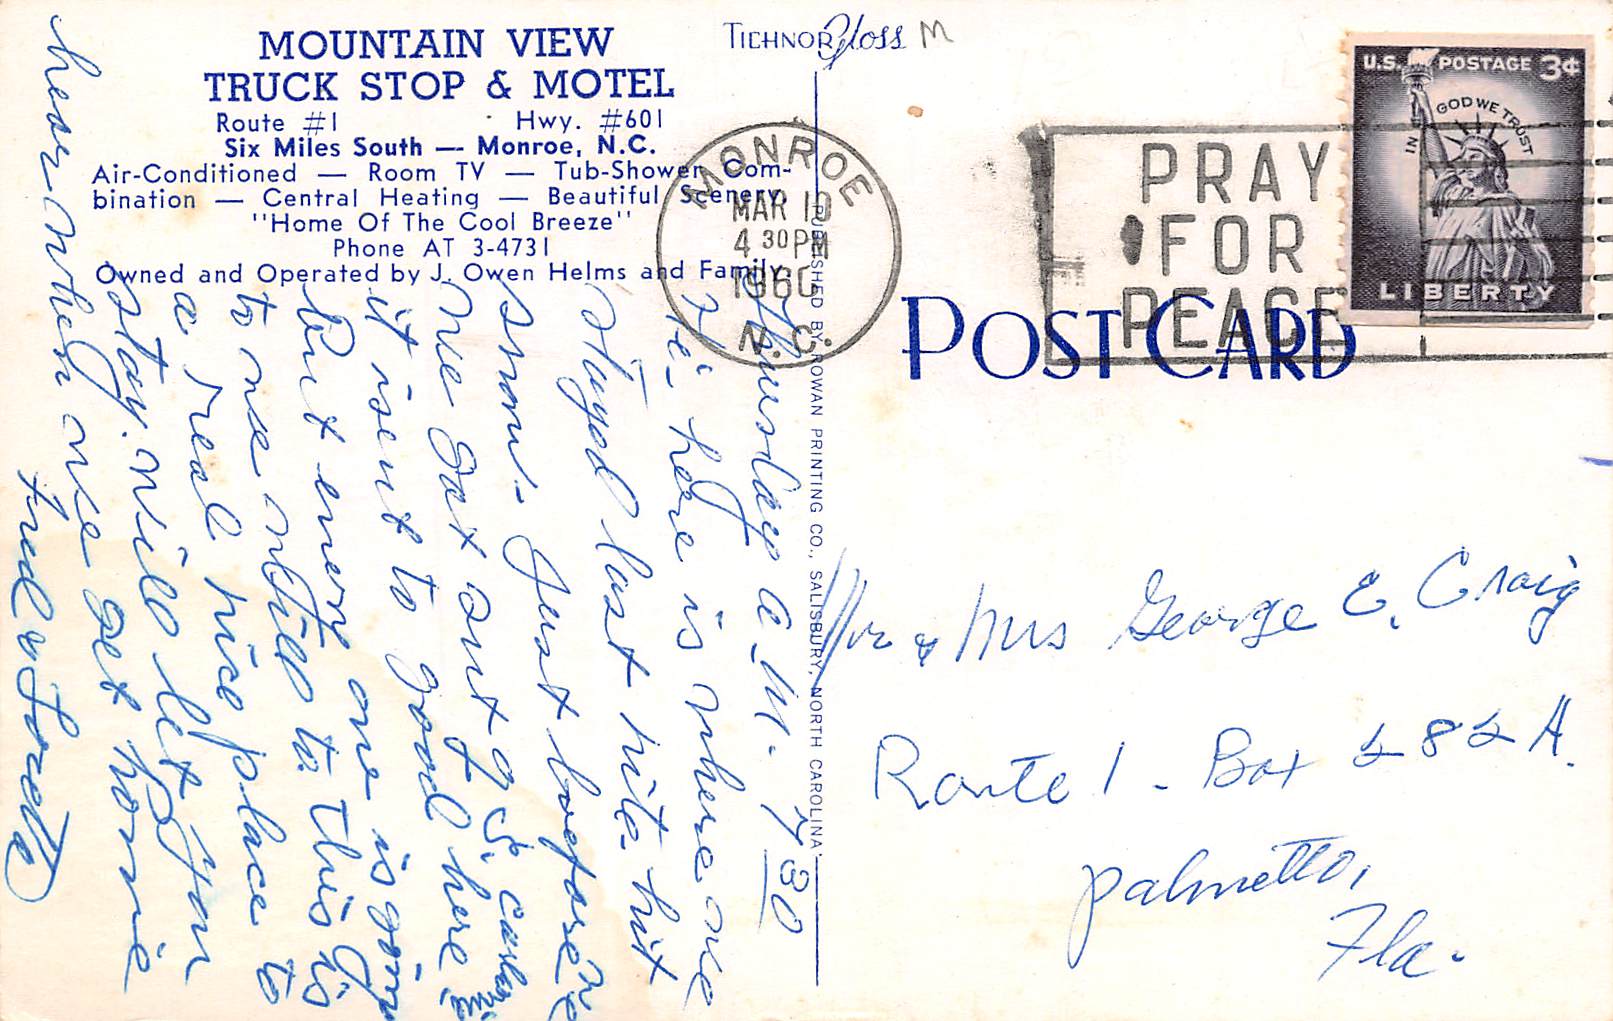 MOUNTAIN VIEW
TRUCK STOP & MOTEL
Route #1 Hwy. #601
Six Miles South — Monroe, N.C.
Air-Conditioned — Room TV — Tub-Shower Com-
bination — Central Heating — Beautiful Scenery
"Home Of The Cool Breeze"
Phone AT 3-4731
Owned and Operated by J. Owen Helms and Family
TICHNOR Gloss M
PUBLISHED BY ROWAN PRINTING CO., SALISBURY, NORTH CAROLINA
MONROE
MAR 10
4 30 PM
1960
N.C.
PRAY
FOR
PEACE
U.S. POSTAGE 3¢
IN GOD WE TRUST
LIBERTY
POST CARD
Thursday A.M. 7 30
Hi - here is where we
stayed last nite - hit
snow - just before
we got out of S. Car
it isent to good here
But every one is going
to one mile to. This is
a real nice place to
stay. will let you
hear when we get home
Fred & Loretta
Mr & Mrs George E. Craig
Route 1 - Box 282 A.
Palmetto,
Fla.